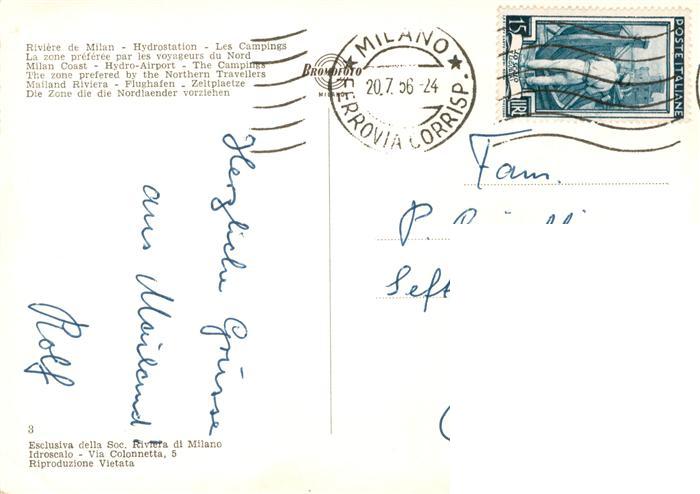 Rivière de Milan - Hydrostation - Les Campings
La zone préférée par les voyageurs du Nord
Milan Coast - Hydro-Airport - The Campings
The zone prefered by the Northern Travellers
Mailand Riviera - Flughafen - Zeltplaetze
Die Zone die die Nordlaender vorziehen
BROMOFOTO
MILANO
★ MILANO ★
20.7.56-24
FERROVIA CORRISP.
15
LIRE
POSTE ITALIANE
Herzliche Grüsse
aus Mailand!
Rolf
Fam.
P.
3
Esclusiva della Soc. Riviera di Milano
Idroscalo - Via Colonnetta, 5
Riproduzione Vietata